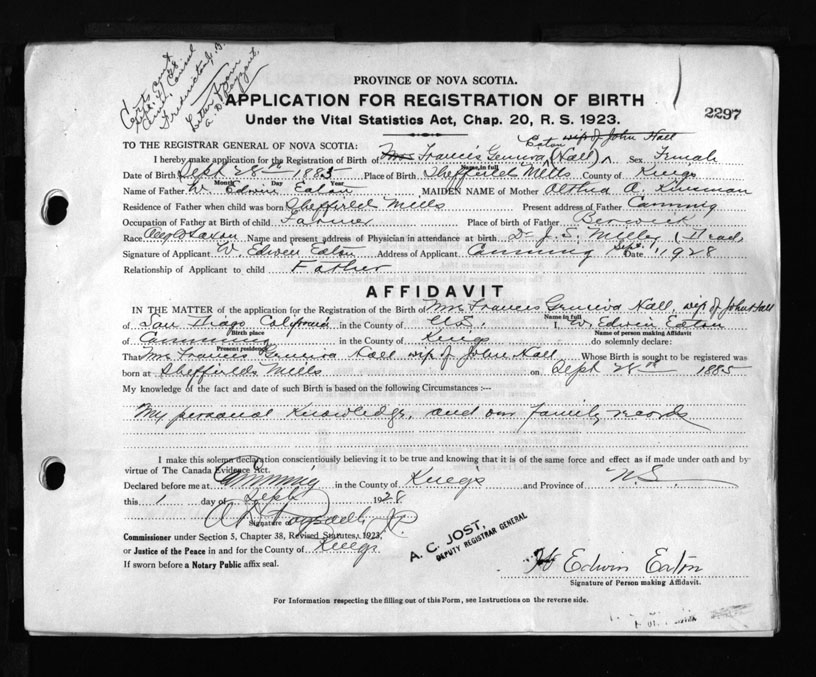 Certs and
Letter from
PROVINCE OF NOVA SCOTIA.
APPLICATION FOR REGISTRATION OF BIRTH
2297
Under the Vital Statistics Act, Chap. 20, R. S. 1923.
Eaton wife of John Hall
TO THE REGISTRAR GENERAL OF NOVA SCOTIA:
I hereby make application for the Registration of Birth of Mrs Francis Geneva (Hall) Sex Female
Name in full
Date of Birth Sept 28th 1885 Place of Birth Sheffield Mills County of Kings
Month Day Year
Name of Father W. Edwin Eaton MAIDEN NAME of Mother Althea A. Kinsman
Residence of Father when child was born Sheffield Mills Present address of Father Canning
Occupation of Father at Birth of child Farmer Place of birth of Father Berwick
Race Anglo Saxon Name and present address of Physician in attendance at birth Dr J. S. Miller (Dead)
Signature of Applicant W Edwin Eaton Address of Applicant Canning Date Sept 1 1928
Relationship of Applicant to child Father
AFFIDAVIT
IN THE MATTER of the application for the Registration of the Birth of Mrs Francis Geneva Hall, wife of John Hall
Name in full
of San Diago California in the County of U.S. I, W. Edwin Eaton
Birth place Name of person making Affidavit
of Canning in the County of Kings do solemnly declare:
Present residence
That Mrs Francis Geneva Hall wife of John Hall Whose Birth is sought to be registered was
born at Sheffields Mills on Sept 28th 1885
My knowledge of the fact and date of such Birth is based on the following Circumstances :—
My personal Knowledge, and our family records
I make this solemn declaration conscientiously believing it to be true and knowing that it is of the same force and effect as if made under oath and by
virtue of The Canada Evidence Act.
Declared before me at Canning in the County of Kings and Province of N.S.
this 1 day of Sept 1928
Signature
Commissioner under Section 5, Chapter 38, Revised Statutes, 1923,
or Justice of the Peace in and for the County of Kings
If sworn before a Notary Public affix seal.
A. C. JOST,
DEPUTY REGISTRAR GENERAL
W Edwin Eaton
Signature of Person making Affidavit.
For Information respecting the filling out of this Form, see Instructions on the reverse side.